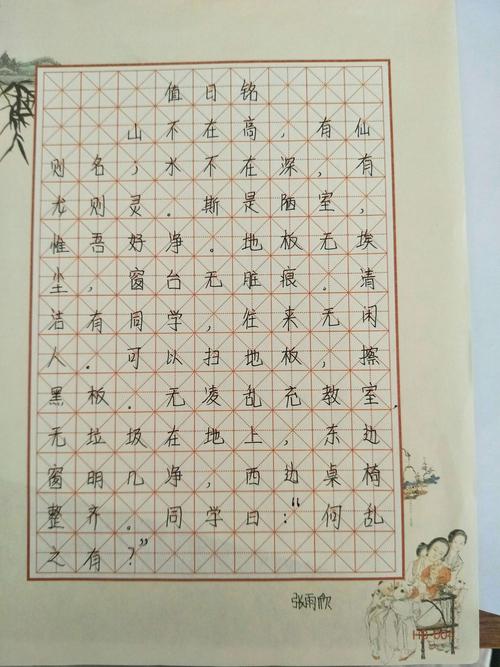 值日铭
山不在高，有仙
则名；水不在深，有
龙则灵。斯是陋室，
惟吾好净。地板无埃
尘，窗台无脏痕。清
洁有同学，往来无闲
人。可以扫地板，擦
黑板。无凌乱充教室，
无垃圾在地上，东边
窗明几净，西边桌椅
整齐。同学曰：“何乱
之有？”
张雨欣